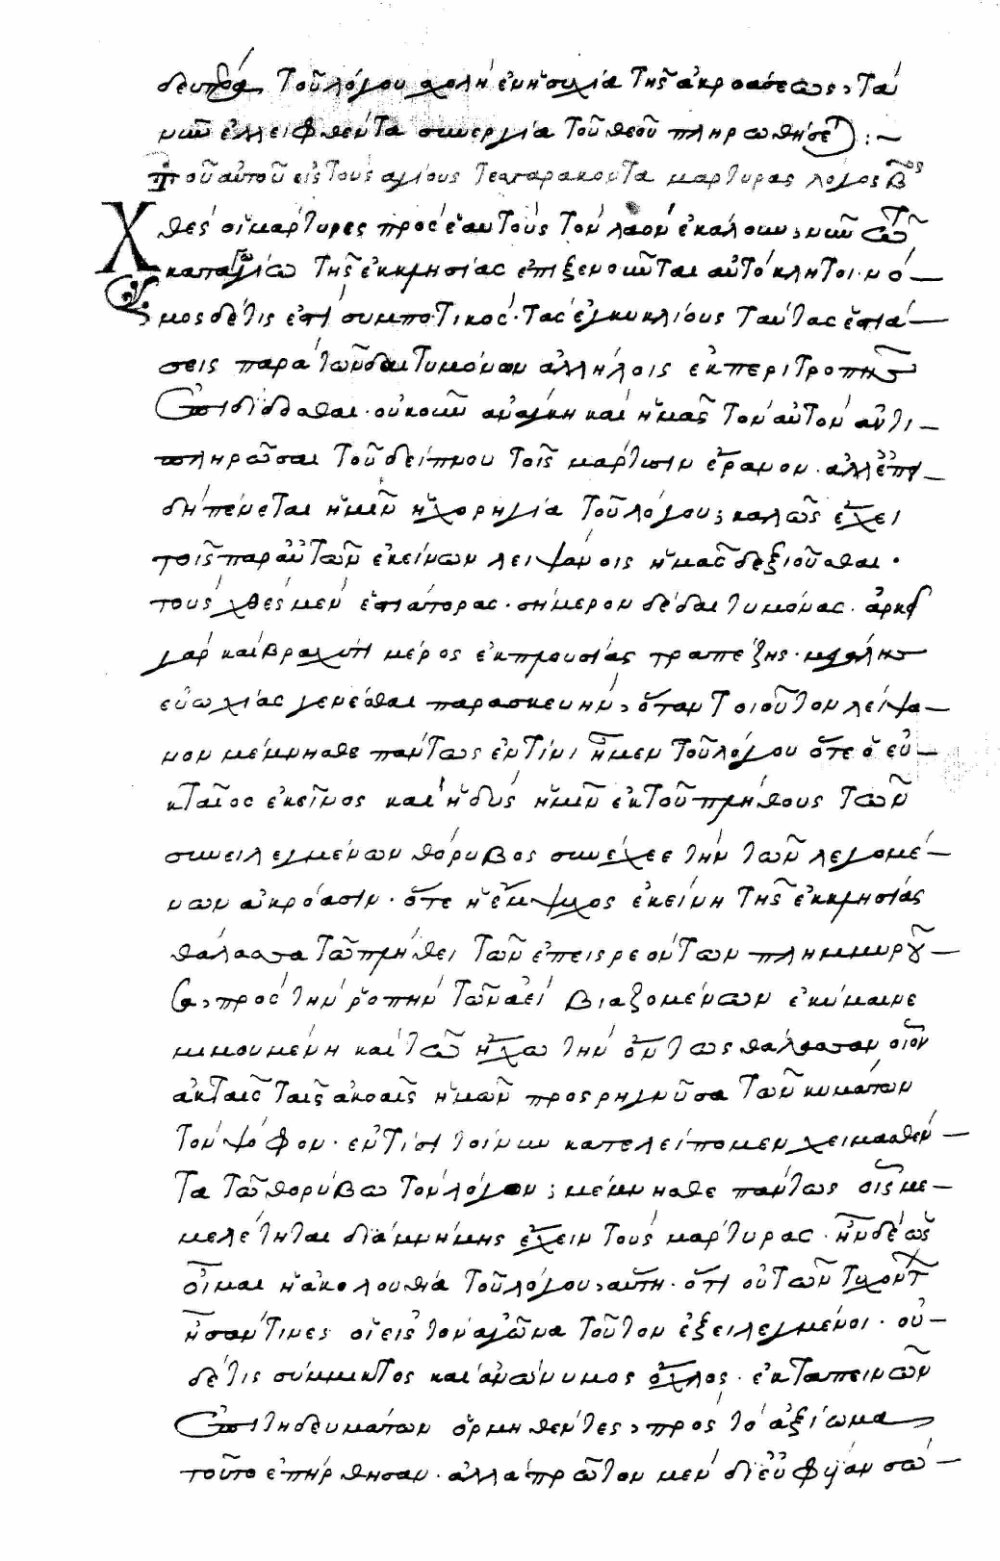 δευτέρα, τοῦ λόγου σχολὴ ἐν ἡσυχία τῆς ἀκροάσεως, τὰ
νῦν ἐλλειφθέντα συνεργία τοῦ θεοῦ πληρωθήσεται :~
τοῦ αὐτοῦ εἰς τοὺς ἁγίους τεσσαράκοντα μάρτυρας λόγος βος
Χθὲς οἱ μάρτυρες πρὸς ἑαυτοὺς τὸν λαὸν ἐκάλουν, νῦν
τῆς ἐκκλησίας ἐπιξενοῦνται αὐτόκλητοι· νό-
μος δέ τις ἐστὶ συμποτικὸς· τὰς ἐγκυκλίους ταύτας ἑστιά-
σεις παρὰ τῶν δαιτυμόνων ἀλλήλοις ἐκ περιτροπῆς
ἀντιδίδοσθαι· οὐκοῦν ἀνάγκη καὶ ἡμᾶς τὸν αὐτὸν ἀντι-
πληρῶσαι τοῦ δείπνου τοῖς μάρτυσιν ἔρανον· ἀλλ' ἐπει-
δὴ πένεται ἡμῖν ἡ χορηγία τοῦ λόγου; καλῶς ἔχει
τοῖς παρ' αὐτῶν ἐκείνων λειψάνοις ἡμᾶς δεξιοῦσθαι·
τοὺς χθὲς μὲν ἑστιάτορας· σήμερον δὲ δαιτυμόνας· ἀρκεῖ
γὰρ καὶ βραχύτι μέρος ἐκ πλουσίας τραπέζης· μεγάλης
εὐωχίας γενέσθαι παρασκευὴν, ὅταν τοιοῦτον λείψα-
νον μέμνησθε πάντως ἐν τίνι ἦμεν τοῦ λόγου ὅτε ὁ εὐ-
κταῖος ἐκεῖνος καὶ ἡδὺς ἡμῖν ἐκ τοῦ πλήθους τῶν
συνειλεγμένων θόρυβος συνέχεε τὴν τῶν λεγομέ-
νων ἀκρόασιν· ὅτε ἡ ἔμψυχος ἐκείνη τῆς ἐκκλησίας
θάλασσα τῶ πλήθει τῶν ἐπεισρεόντων πλημμυροῦ-
σα, πρὸς τὴν ῥοπὴν τῶν ἀεὶ βιαζομένων ἐκύμαινε
μιμουμένη καὶ τῶ ἤχω τὴν ὄντως θάλασσαν οἷον
ἀκταῖς ταῖς ἀκοαῖς ἡμῶν προσρηγνῦσα τῶν κυμάτων
τὸν ψόφον· ἐν τίσι τοίνυν κατελείπομεν χειμασθέν-
τα τῶ θορύβω τὸν λόγον; μέμνησθε πάντως οἷς με-
μελέτηται διὰ μνήμης ἔχειν τοὺς μάρτυρας· ἦν δὲ ὡς
οἶμαι ἡ ἀκολουθία τοῦ λόγου, αὕτη· ὅτι οὐ τῶν τυχόντων
ἦσαν τινες οἱ εἰς τὸν ἀγῶνα τοῦτον ἐξειλεγμένοι· οὐ-
δέ τις σύμμικτος καὶ ἀνώνυμος ὄχλος· ἐκ ταπεινῶν
ἐπιτηδευμάτων ὁρμηθέντες, πρὸς τὸ ἀξίωμα
τοῦτο ἐπήρθησαν· ἀλλὰ πρῶτον μὲν δι' εὐφυΐαν σώ-